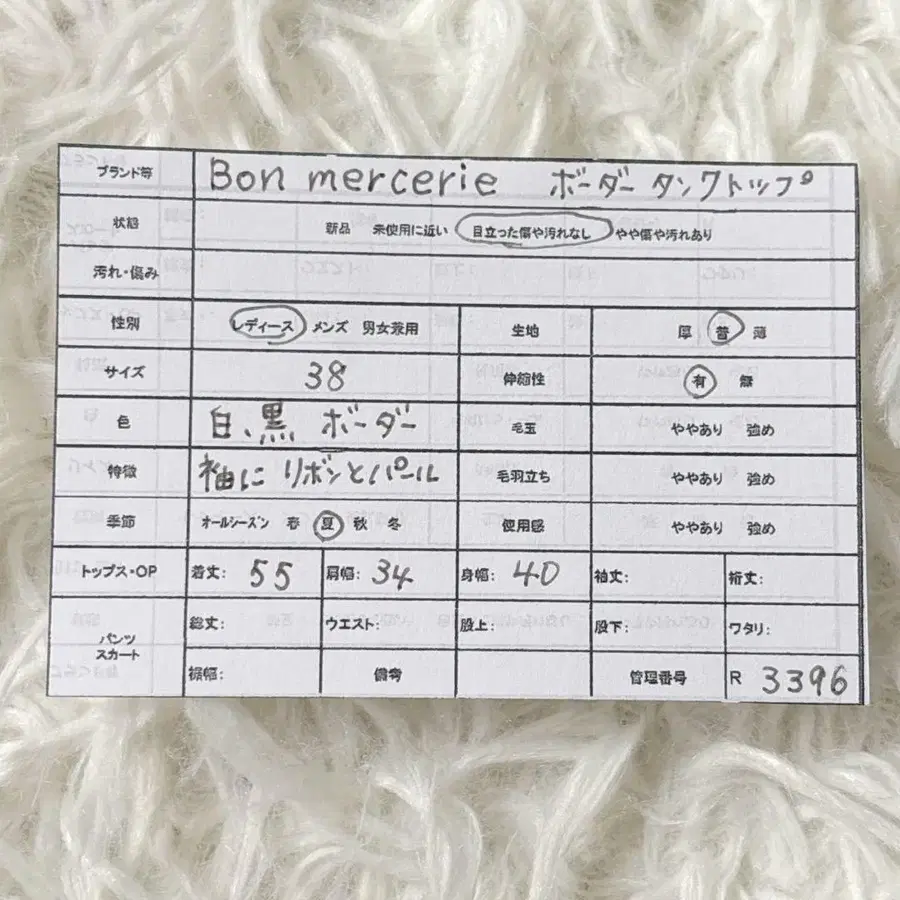 ブランド等 Bon mercerie ボーダー タンクトップ
状態 新品 未使用に近い 目立った傷や汚れなし やや傷や汚れあり
汚れ・傷み
性別 レディース メンズ 男女兼用 生地 厚 普 薄
サイズ 38 伸縮性 有 無
色 白、黒 ボーダー 毛玉 ややあり 強め
特徴 袖に リボンとパール 毛羽立ち ややあり 強め
季節 オールシーズン 春 夏 秋 冬 使用感 ややあり 強め
トップス・OP 着丈: 55 肩幅: 34 身幅: 40 袖丈: 裄丈:
パンツ スカート 総丈: ウエスト: 股上: 股下: ワタリ:
裾幅: 備考 管理番号 R 3396